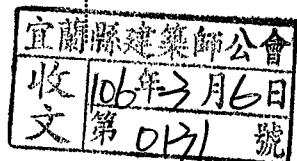 宜蘭縣建築師公會
收文
106年3月6日
第0131號